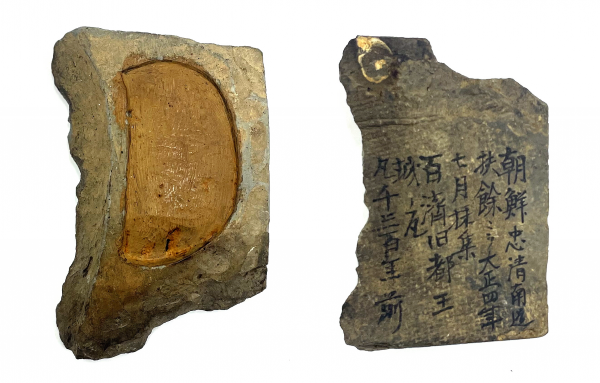 朝鮮忠清南道
扶餘ニテ大正四年
七月採集
百濟旧都王
城ノ瓦
凡千三百年前